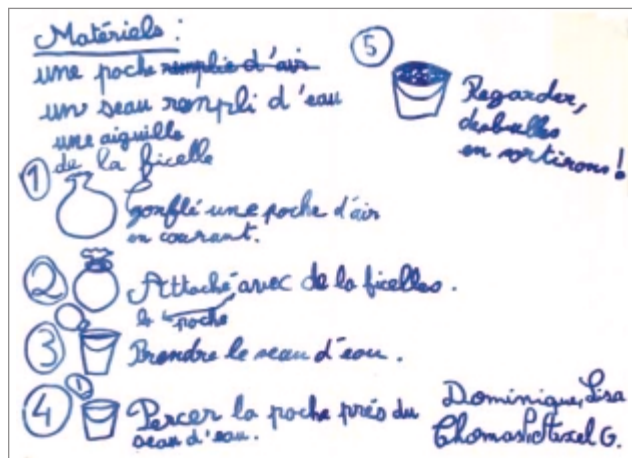 Matériels :
une poche remplie d'air
un seau rempli d'eau
une aiguille
de la ficelle
1
Gonflé une poche d'air
en courant.
2
Attaché avec de la ficelles.
la poche
3
Prendre le seau d'eau.
4
Percer la poche prés du
seau d'eau.
5
Regarder,
des bulles
en sortirons !
Dominique, Lisa
Thomas, Axel G.